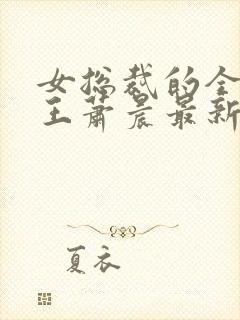 女总裁的全
王萧晨最新
夏衣